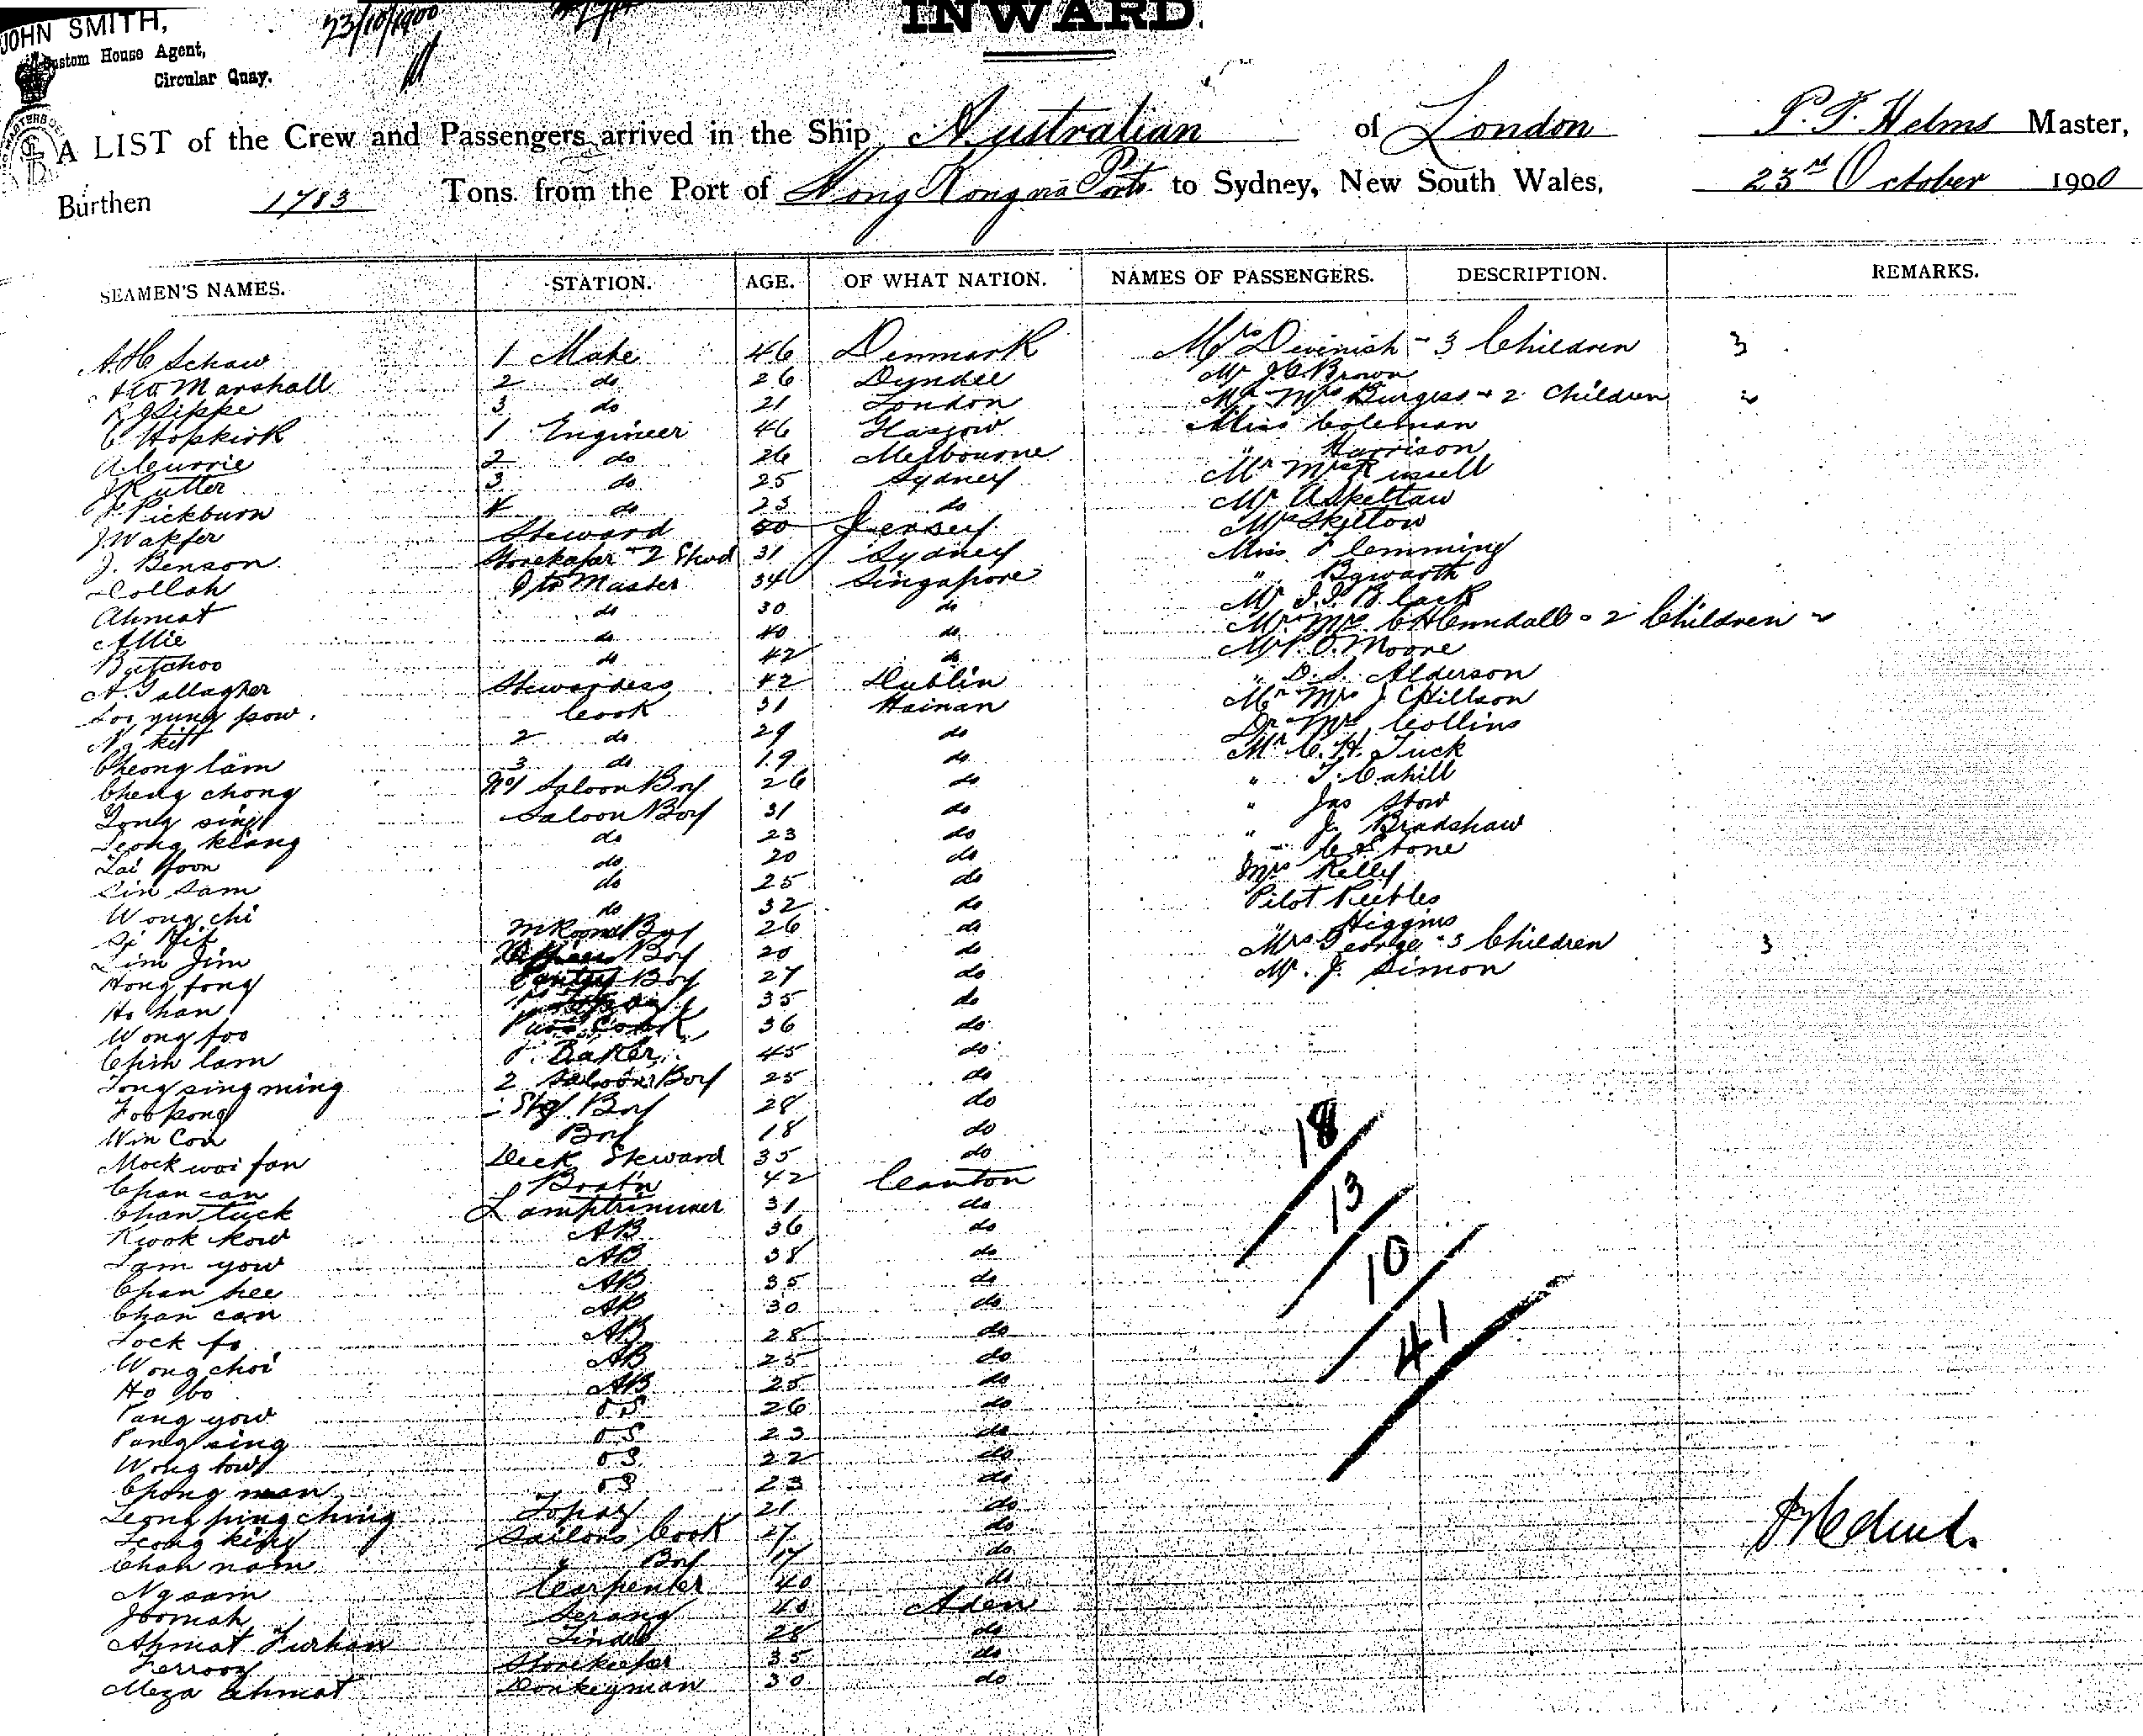 INWARD.
JOHN SMITH,
Custom House Agent,
Circular Quay.
23/10/1900
A LIST of the Crew and Passengers arrived in the Ship Australian of London P. T. Helms Master,
Burthen 1783 Tons from the Port of Hong Kong via Ports to Sydney, New South Wales, 23rd October 1900
SEAMEN'S NAMES. STATION. AGE. OF WHAT NATION. NAMES OF PASSENGERS. DESCRIPTION. REMARKS.
A.H Schaw 1 Mate 46 Denmark Mrs Devenish - 3 Children 3
Marshall 2 do 26 Dundee Mr J C Brown
Sippe 3 do 21 London Mr Mrs Burgess + 2 Children 2
C Hopkirk 1 Engineer 46 Glasgow Miss Coleman
A. Currie 2 do 26 Melbourne " Harrison
J Rutter 3 do 25 Sydney Mr Mrs Russell
J. Pickburn 4 do 23 do Mr A Skeltow
J Wakfer Steward 50 Jersey Mrs Skeltow
J. Benson Storekeeper + 2 Stwd 31 Sydney Miss Flemming
Dollah Qtr Master 34 Singapore "
Ahmat do 30 do Mr Black
Allie do 40 do Mr Mrs - 2 Children 2
Batchoo do 42 do Mr P. O. Moore
A. Gallagher Stewardess 42 Dublin " D. S. Alderson
Loo yung pow Cook 31 Hainan Mr Mrs J Hillson
Ng kitt 2 do 29 do Dr Mrs Collins
Cheong lam 3 do 19 do Mr C. H. Tuck
Cheng chong No 1 Saloon Boy 26 do " T. Cahill
Tong sing Saloon Boy 31 do " Jas Stow
Leong kiang do 23 do " J. Bradshaw
Lai foon do 20 do " C Stone
Lin sam do 25 do Mrs Kelly
Wong chi do 32 do Pilot Peebles
Si Hit M Room Boy 26 do " Higgins
Lim Jim Boy 20 do Mrs George - 3 Children 3
Hong fong Pantry Boy 27 do Mr. J. Simon
Ho han 35 do
Wong foo Cook 36 do
Chin lam Baker 45 do
Tong sing ming 2 Saloon Boy 25 do
Foo pong Stg Boy 28 do
Win Con Boy 18 do
Mock wai fan Deck Steward 35 do
Chan can Boat'n 42 Canton
Chan tuck Lamptrimmer 31 do
Kwok kow AB 36 do
Lam yow AB 38 do
Chan hee AB 35 do
Chan can AB 30 do
Lock fo AB 28 do
Wong choi AB 25 do
Ho bo AB 25 do
Pang yow OS 26 do
Pang sing OS 23 do
Wong tow OS 22 do
Chong man OS 23 do
Leong ping ching Topaz 21 do
Leong king Sailors Cook 27 do
Chan nam " Boy 17 do
Ng sam Carpenter 40 do
Joomah Serang 40 Aden
Ahmat Furhan Tindal 28 do
Ferrooz Storekeeper 35 do
Meza Ahmat Donkeyman 30 do
18
13
10
41